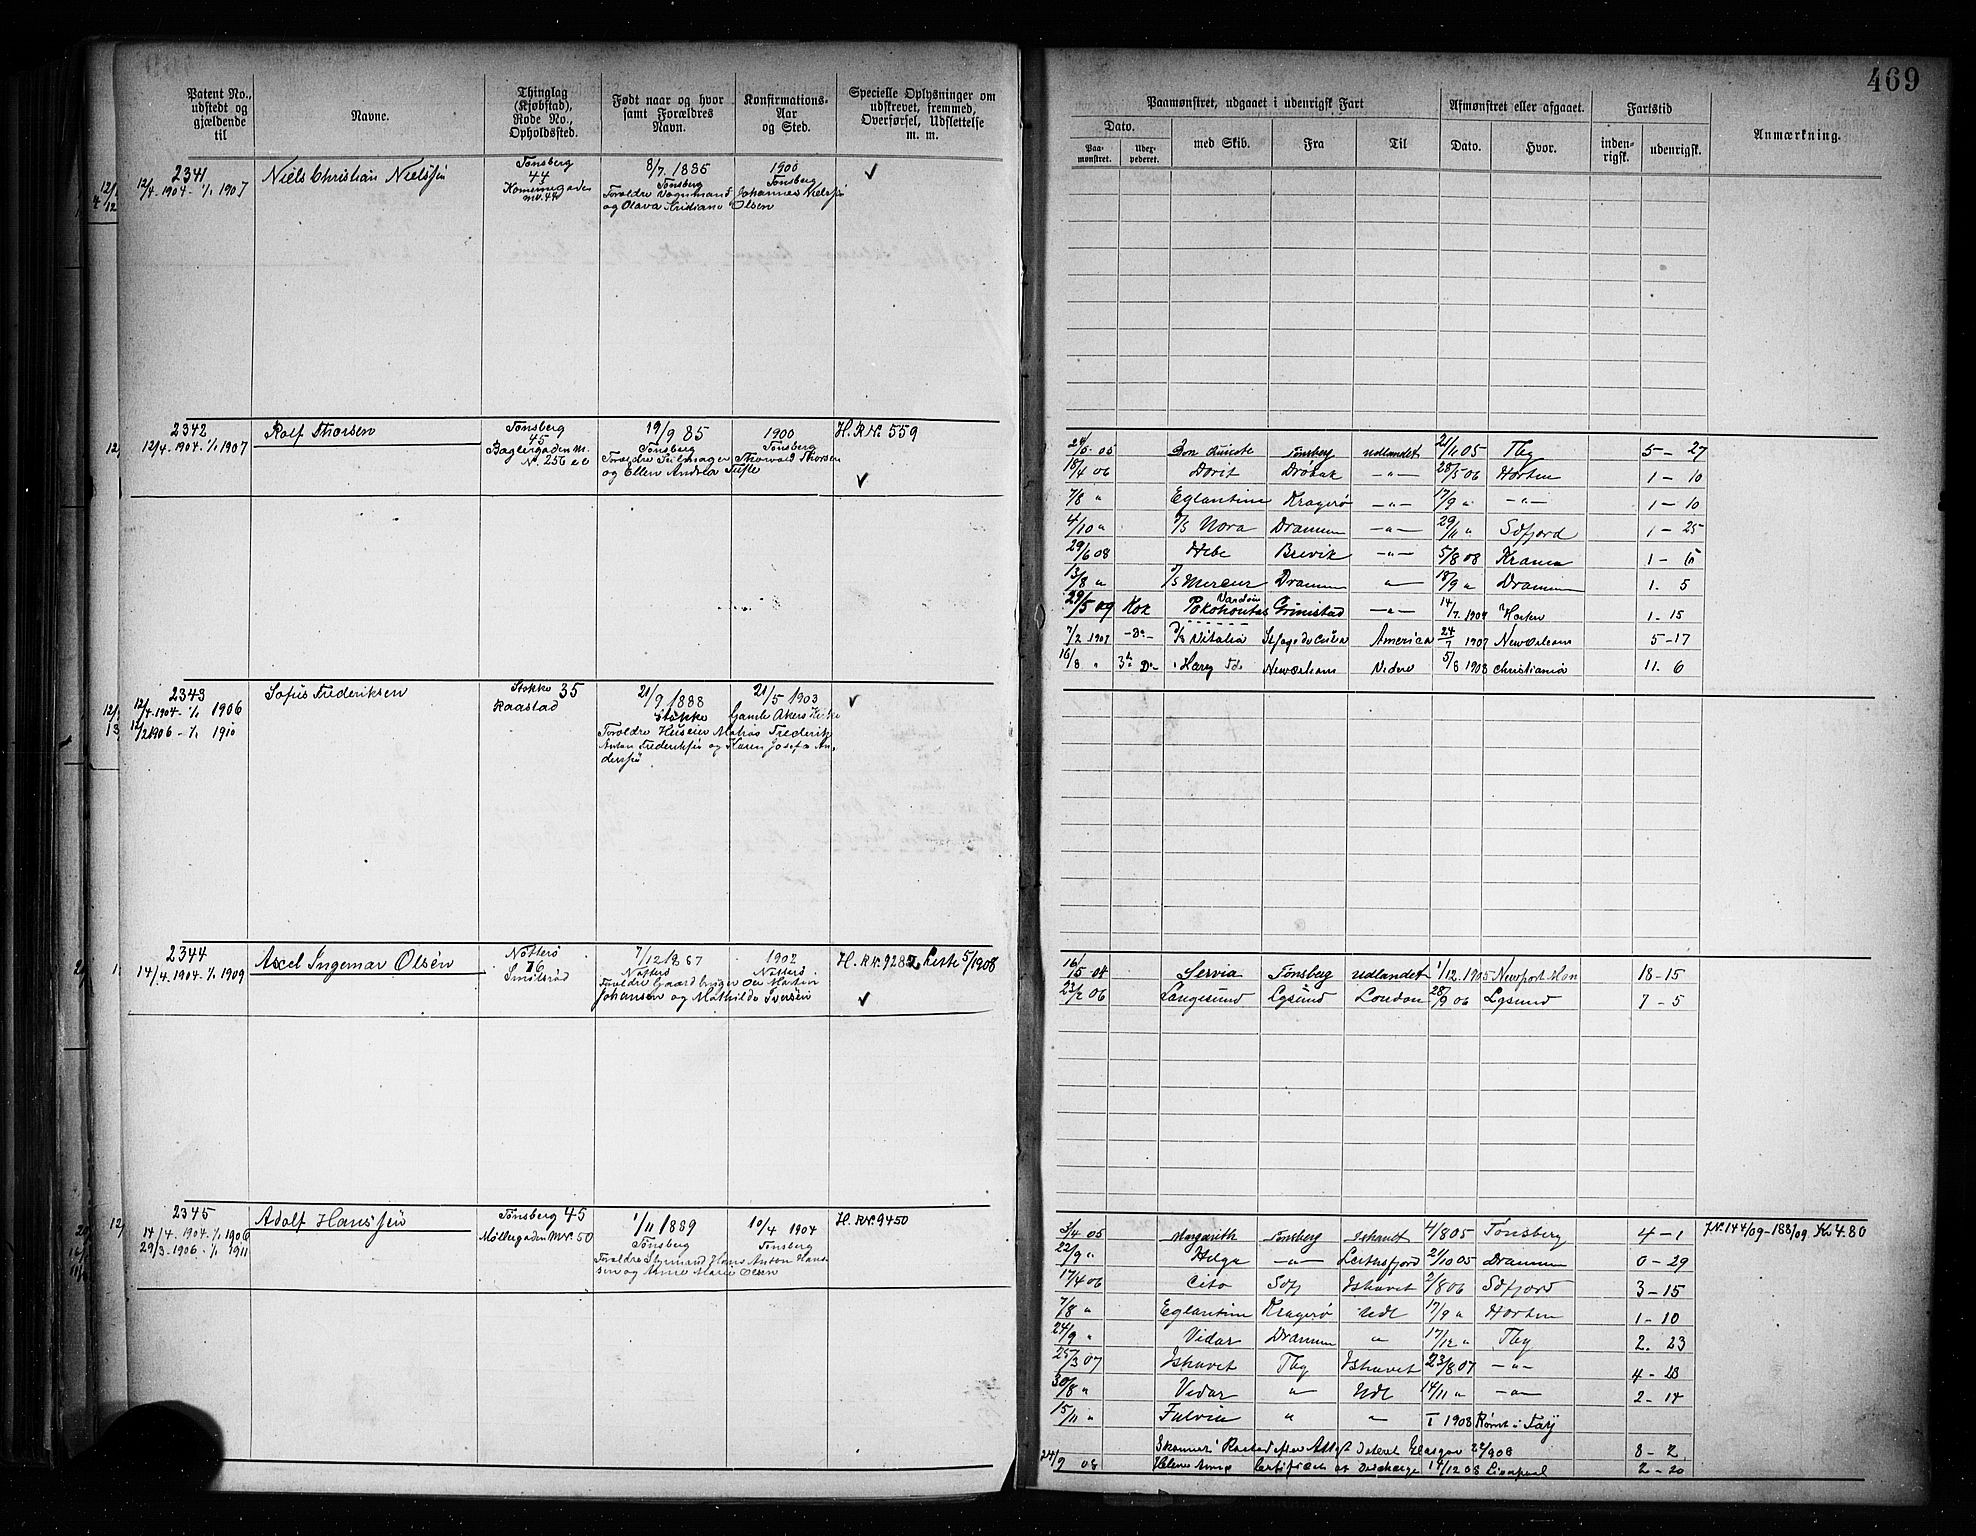 469
Patent No., udstedt og gjældende til
Navne.
Thinglag (Kjøbstad), Rode No., Opholdssted.
Født naar og hvor samt Forældres Navn.
Konfirmations-Aar og Sted.
Specielle Oplysninger om udskrevet, fremmed, Overførsel, Udslettelse m. m.
Paamønstret, udgaaet i udenrigsk Fart
Afmønstret eller afgaaet.
Fartstid
Anmærkning.
Dato.
med Skib.
Fra
Til
Dato.
Hvor.
inden-rigsk.
udenrigsk.
Paa-mønstret.
Udex-pederet.
2341
12/4. 1904 - 1/1 1907
Niels Christian Nielsen
Tønsberg
44
8/7. 1885
Tønsberg
1900
Tønsberg
Forældre Vognmand Johannes Nielsen
og Olava Kristiane Olsen
2342
12/4. 1904. 1/1 1907
Rolf Thorsen
Tønsberg
45
Baglergaden
No. 256
19/9 85
Tønsberg
1900
Tønsberg
Forældre Seilmager Thorvald Thorsen
og Ellen Andrea
H. R No. 559
24/5. 05 Tønsberg udlandet 21/11 05 Tbg 5 - 27
18/4 06 Dorit Drøbak -"- 28/5 06 Horten 1 - 10
7/8 " Eglantine Kragerø -"- 17/9 " -"- 1 - 10
4/10 " Nora Drammen -"- 29/11 " Sdfjord 1 - 25
29/6 08 Hebe Brevik -"- 5/8 08 1 - 6
13/8 " Mercur Drammen " 18/9 " Drammen 1. 5
29/5 09 Kok Pokohontas Grimstad -"- 14/7. 1909 Horten 1. 15
7/2 1907 -Do- Vitalia America 24/7 1907 NewOrleans 5 - 17
16/8 " NewOrleans Videre 5/8 1908 Christiania 11. 6
2343
12/4. 1904 - 1/1 1906
12/2 1906 - 1/1 1910
Sofus Frederiksen
Stokke 35
Raastad
21/9 1888
Stokke
21/5 1903
Gamle Akers Kirke
Forældre Matros Frederik
Anton Frederiksen og Karen Josefa An-
dersen
2344
14/4. 1904. 1/1 1909
Axel Ingemar Olsen
Nøtterø
76
Smidsrød
7/12 1887
Nøtterø
1902
Nøtterø
Forældre Gaardbruger Ole Martin
Johansen og Mathilde Iversen
H. R No. 9282 5/1908
Servia Tønsberg udlandet 1/12. 1905 Newport Mon 18 - 15
23/2 06 Langesund Lgsund London 28/9 06 Lgsund 7 - 5
2345
14/4. 1904. 1/1 1906
29/3. 1906 - 1/1 1911
Adolf Hansen
Tønsberg 45
Møllergaden No. 50
1/11 1889
Tønsberg
10/4 1904
Tønsberg
Forældre Styrmand Hans Anton Han-
sen og Anne Marie Olsen
H. R No. 9450
3/4 05 Margarith Tønsberg Ishavet 4/8 05 Tønsberg 4 - 1 J No. 144/09 - 188/09. Kr 4.80
22/9 " Helga -"- 21/10 05 Drammen 0 - 29
17/4 06 Cito Sdfj Ishavet 2/8 06 Sdfjord 3 - 15
7/8 " Eglantine Kragerø Udl 17/9 " Horten 1 - 10
24/9 " Vidar Drammen " 17/12 " Tbg 2. 23
25/3 07 Ishavet Tbg Ishavet 23/8 07 -"-
30/8 " Vidar " Udl 14/11 " -"- 2 - 14
15/11 " Fulvia " " 1908 Rømt i
Glasgow 8 - 2
24/9 08 Certificate of Discharge 14/12 08 Liverpool 2 - 20